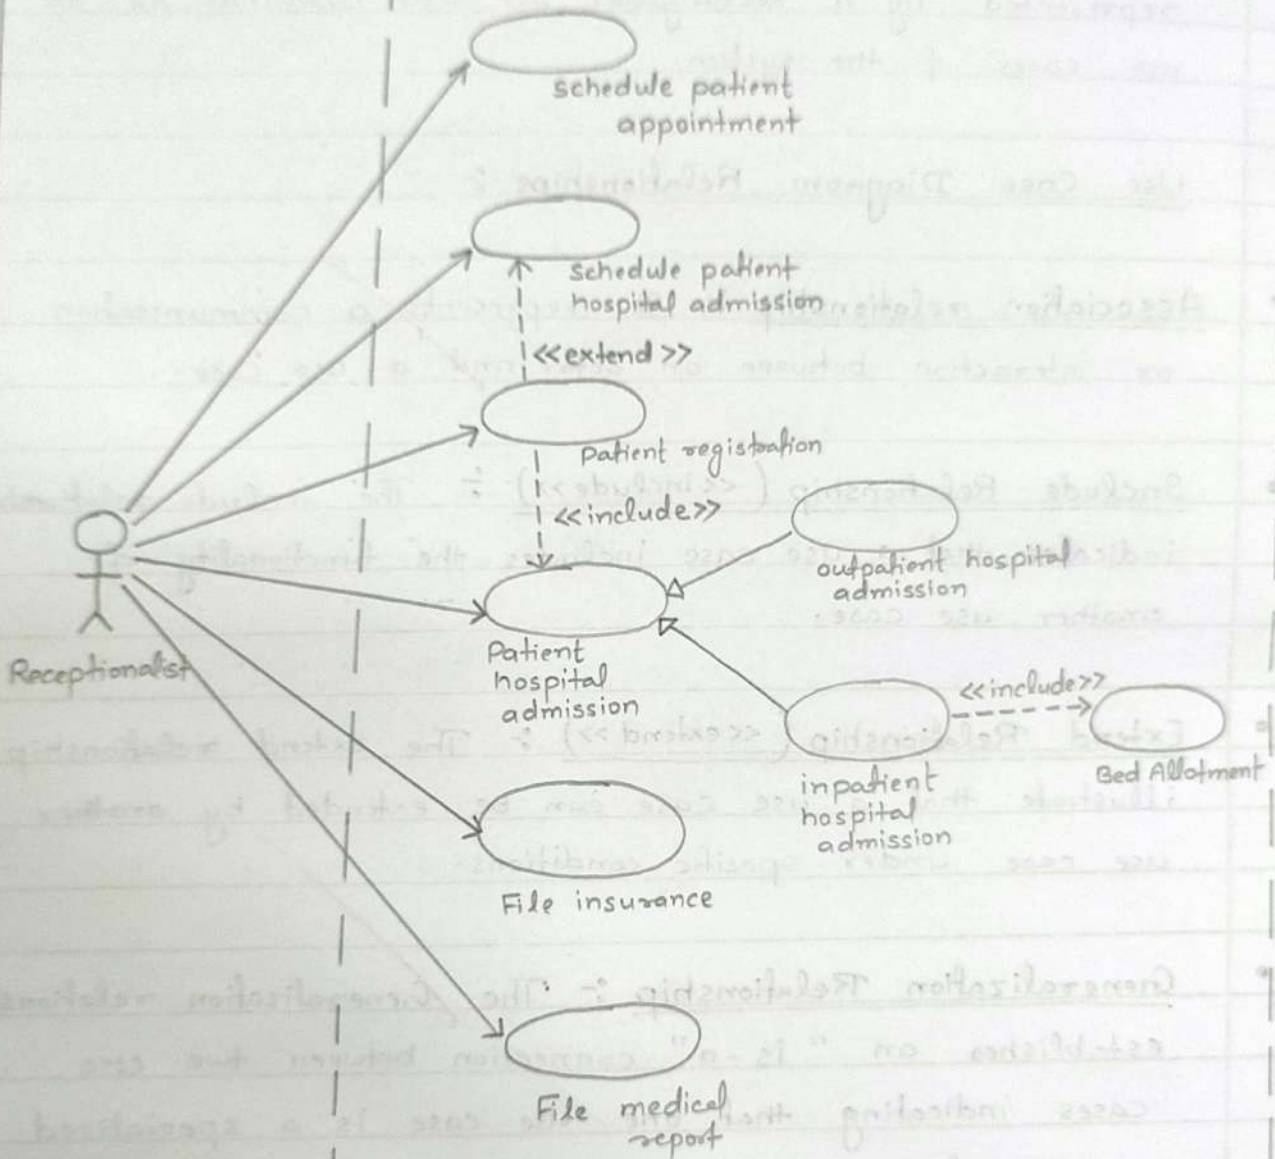 schedule patient
appointment
schedule patient
hospital admission
<<extend>>
Patient registration
<<include>>
outpatient hospital
admission
Receptionalist
Patient
hospital
admission
<<include>>
Bed Allotment
inpatient
hospital
admission
File insurance
File medical
report